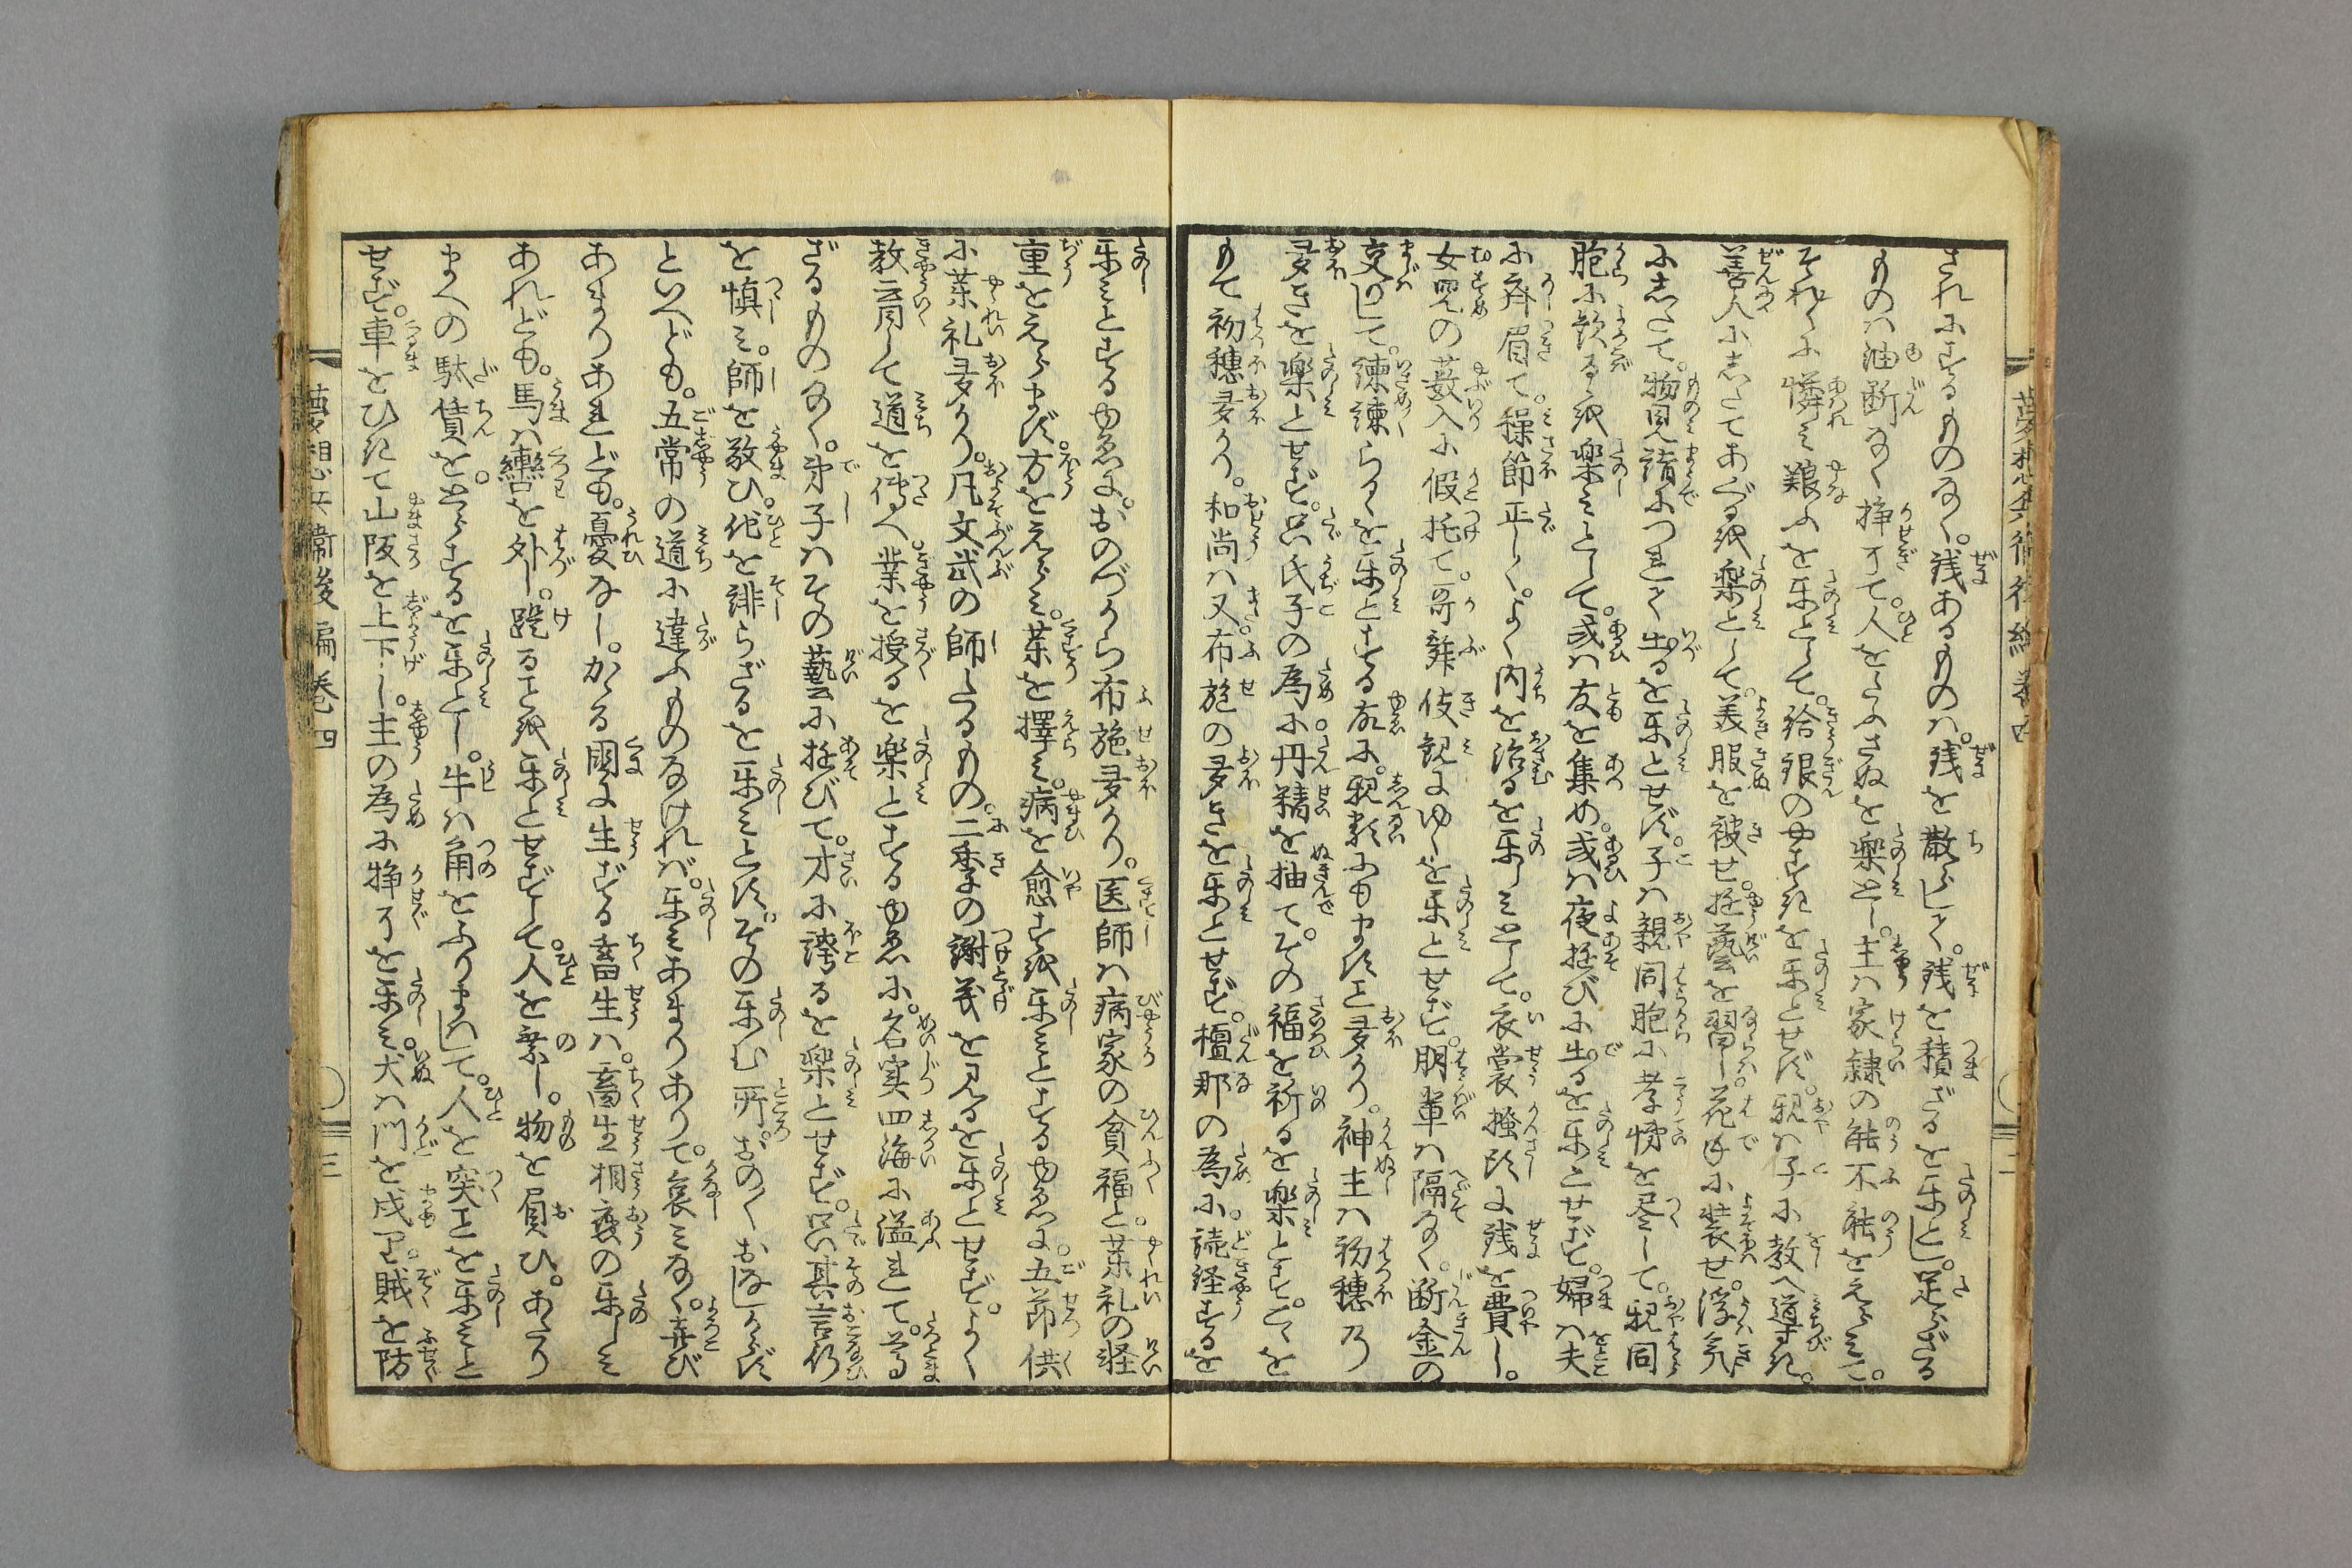 されにするものなく。銭あるものハ。銭を散らして。銭を積ざるを楽とし。足らざる
ものハ油断なく挣ぎて。人をたふさぬを楽とし。主ハ家隷の能不能をえらミて。
それ〳〵に憐ミ艱ふを楽として。給銀のやすきを楽とせず。親ハ子に教へ導き。
善人にしたてあぐるを楽として。美服を被せ。遊藝を習ハし。花手に装せ。浮気
にしたて。物見詣につれて出るを楽とせず。子ハ親同胞に孝悌を尽して。親同
胞に歓るゝを楽ミとして。或ハ友を集め。或ハ夜遊びに出るを楽とせず。婦ハ夫
に斉眉て。操節正しく。よく内を治るを楽ミとして。衣裳掻頭に銭を費し。
女児の薮入に假托て。哥舞伎観にゆくを楽とせず。朋輩ハ隔なく。断金の
交りして。諫諫らるゝを楽とする故に。親類にもますこと多かり。神主ハ初穂の
多きを楽とせず。只氏子の為に丹精を抽て。その福を祈るを楽とす。こゝを
もて初穂多かり。和尚ハ又布施の多きを楽とせず。檀那の為に。読経するを
楽ミとするゆゑに。おのづから布施多かり。医師ハ病家の貧福と。薬礼の軽
重をえらまず。方をえらミ。薬を擇ミ。病を愈すを楽ミとするゆゑに。五節供
に薬礼多かり。凡文武の師たるもの。二季の謝義を見るを楽とせず。よく
教育して道を傳へ。業を授るを楽とするゆゑに。名実四海に溢れて。尊
ざるものなく。弟子ハその藝に遊びて。才に誇るを楽とせず。只其言行
を慎ミ。師を敬ひ。他を誹らざるを楽ミとす。その楽む所。おのく おなしからず
といへども。五常の道に違ふものなければ。楽ミあまりありて。哀ミなく。喜び
あまりあれども。憂なし。かゝる国に生ずる畜生ハ。畜生相應の楽しミ
あれども。馬ハ轡を外し。蹴るを楽とせずして。人を乗し。物を負ひ。あたり
まへの駄賃を。とらするを楽とし。牛ハ角をふりまハして。人を突ことを楽ミと
せず。車をひきて山阪を上下し。主の為に挣ぐを楽ミ。犬ハ門を戍り。賊を防
夢想兵衛後編巻四
三